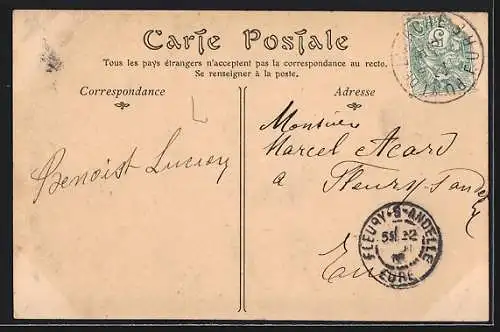 Carte Postale
Tous les pays étrangers n'acceptent pas la correspondance au recto.
Se renseigner à la poste.
Correspondance
Adresse
Benoist Lucien
Monsieur
Marcel Acard
a Fleury-s-andelle
Eure
FLEURY-S-ANDELLE
EURE